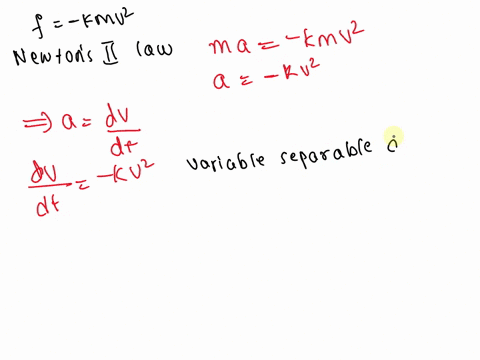 f = -kmv²
Newton's II law
ma = -kmv²
a = -kv²
⟹ a = dv/dt
dv/dt = -kv²
variable separable